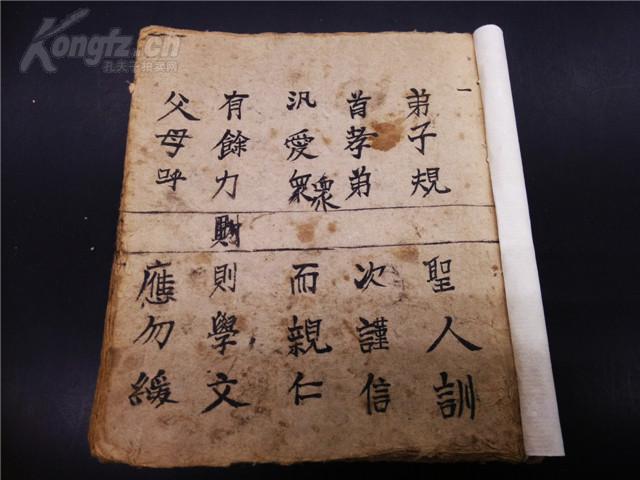 Kongfz.cn
孔夫子拍卖网
一
弟子規 聖人訓
首孝弟 次謹信
汎愛衆 衆 而親仁
有餘力 財 則學文
父母呼 應勿緩